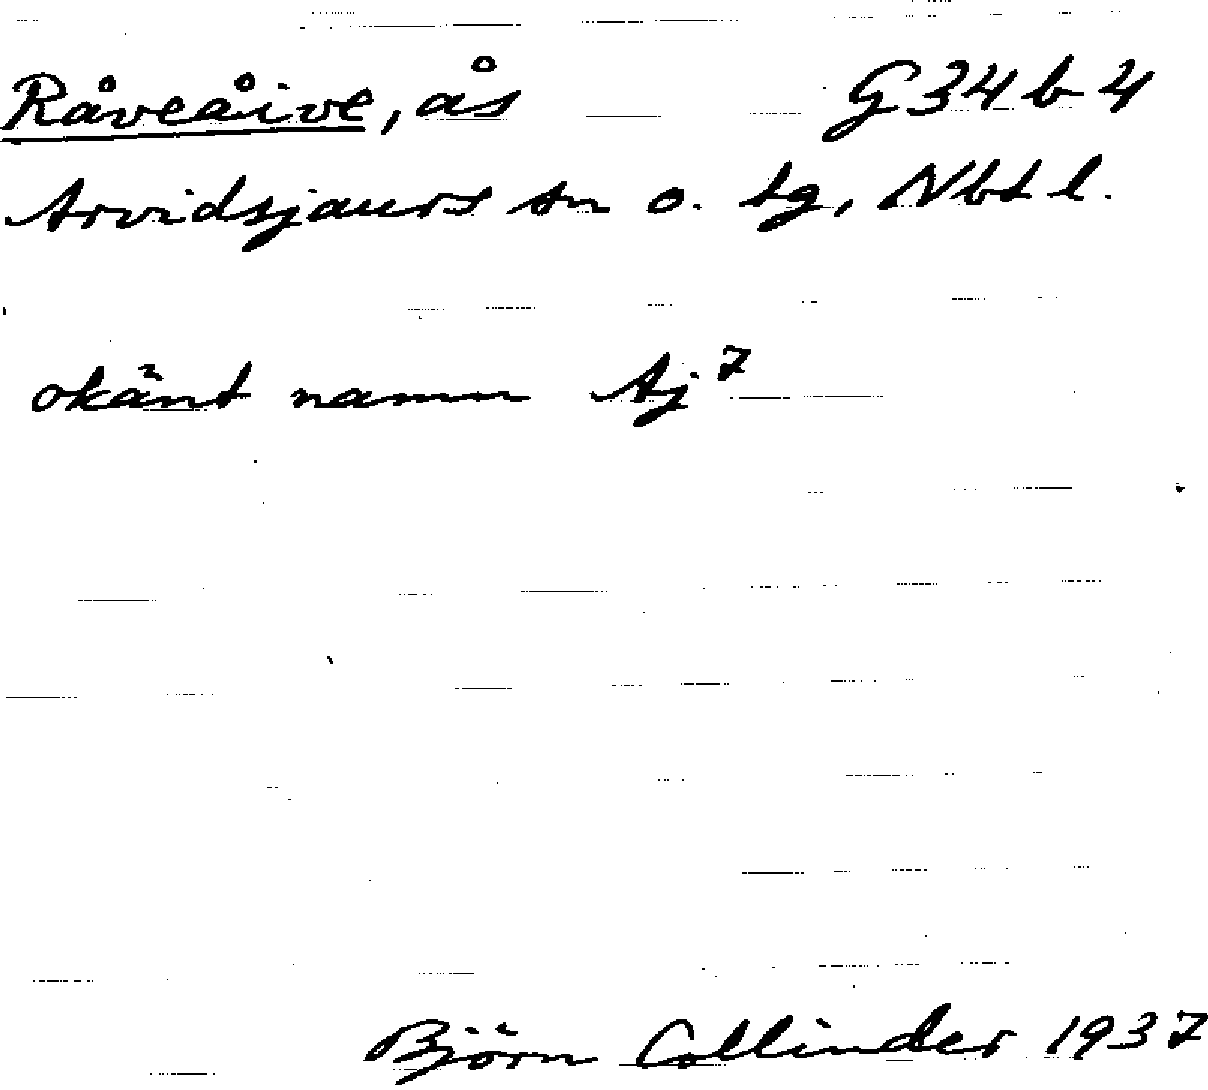 Råveåive, ås G34b4
Arvidsjaurs sn o. tg, Nbt l.
okänt namn Aj 7
Björn Collinder 1937